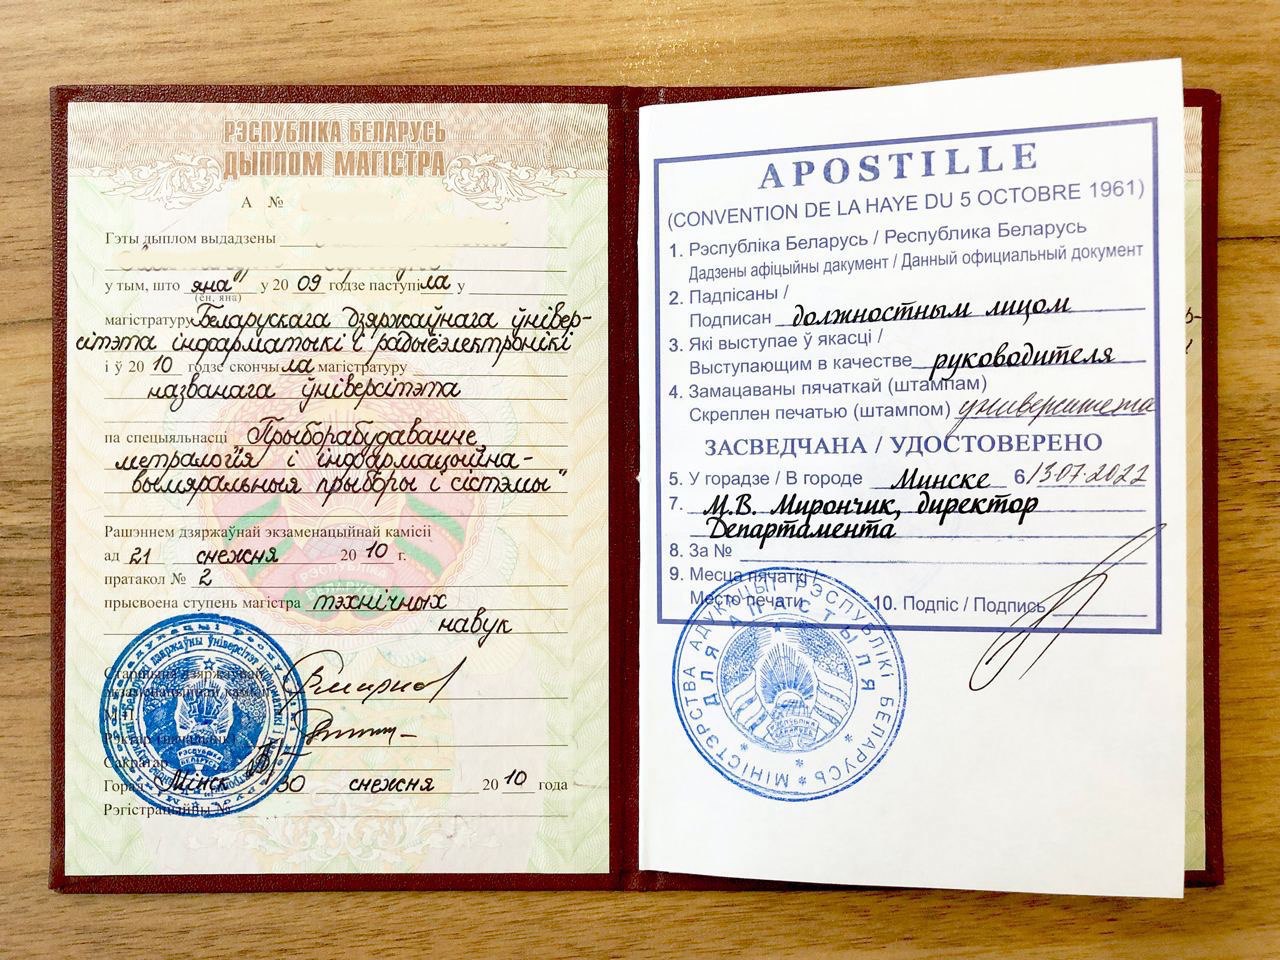 РЭСПУБЛІКА БЕЛАРУСЬ
ДЫПЛОМ МАГІСТРА
А №
Гэты дыплом выдадзены
у тым, што яна у 20 09 годзе паступіла у
(ён, яна)
магістратуру Беларускага дзяржаўнага ўнівер-
сітэта інфарматыкі і радыёэлектронікі
і ў 20 10 годзе скончыла магістратуру
названага ўніверсітэта
па спецыяльнасці "Прыборабудаванне,
метралогія і інфармацыйна-
вымяральныя прыборы і сістэмы"
Рашэннем дзяржаўнай экзаменацыйнай камісіі
ад 21 снежня 20 10 г.
пратакол № 2
прысвоена ступень магістра тэхнічных
навук
Старшыня дзяржаўнай
экзаменацыйнай камісіі
М.П.
Рэктар
Сакратар
Горад Мінск 30 снежня 20 10 года
Рэгістрацыйны №
РЭСПУБЛІКА
БЕЛАРУСЬ
APOSTILLE
(CONVENTION DE LA HAYE DU 5 OCTOBRE 1961)
1. Рэспубліка Беларусь / Республика Беларусь
Дадзены афіцыйны дакумент / Данный официальный документ
2. Падпісаны /
Подписан должностным лицом
3. Які выступае ў якасці /
Выступающим в качестве руководителя
4. Замацаваны пячаткай (штампам)
Скреплен печатью (штампом) университета
ЗАСВЕДЧАНА / УДОСТОВЕРЕНО
5. У горадзе / В городе Минске 6 13.07.2022
7. М.В. Мирончик, директор
Департамента
8. За №
9. Месца пячаткі /
Место печати 10. Подпіс / Подпись
МІНІСТЭРСТВА АДУКАЦЫІ РЭСПУБЛІКІ БЕЛАРУСЬ
ДЛЯ АПАСТЫЛЯ
РЭСПУБЛІКА
БЕЛАРУСЬ